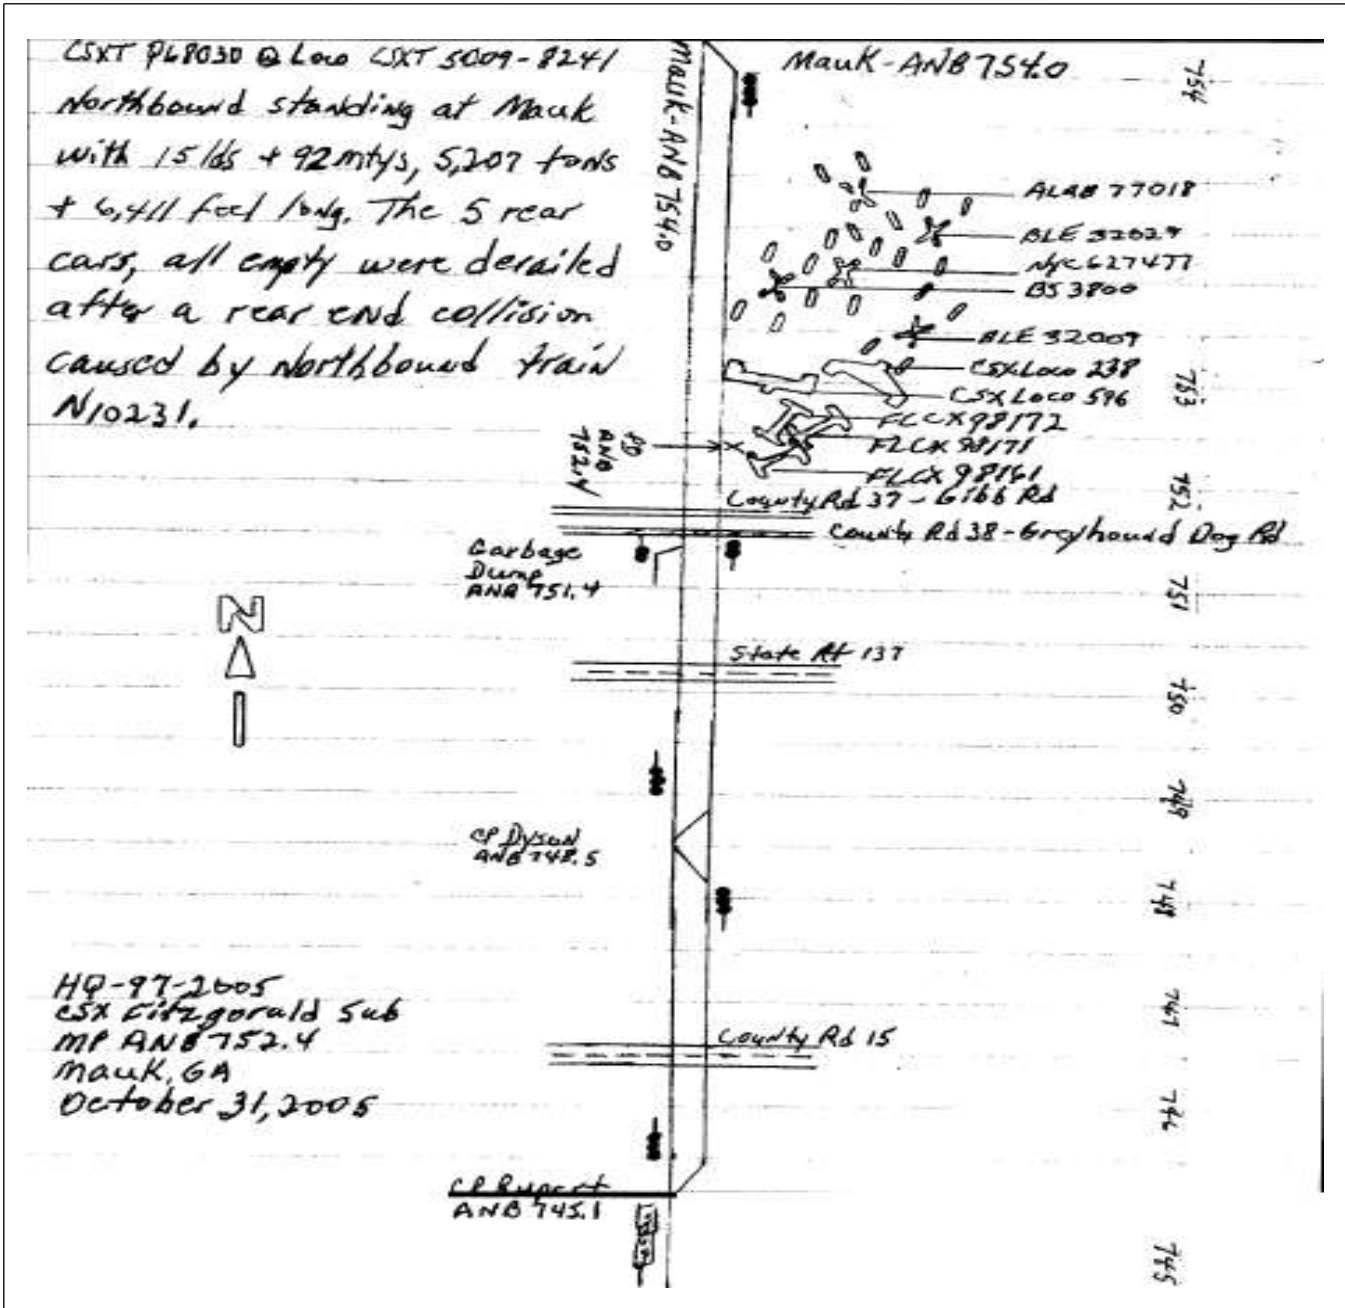 CSXT P68030 @ Loco CSXT 5009-8241
Northbound standing at Mauk
with 15 lds + 92 mtys, 5,207 tons
+ 6,411 feet long. The 5 rear
cars, all empty were derailed
after a rear end collision
caused by Northbound train
N10231.
Mauk-ANB 754.0
Mauk-ANB 754.0
754
ALAB 77018
BLE 32029
NYC 627477
BS 3800
BLE 32009
CSX Loco 238
CSX Loco 596
753
FLCX 98172
FLCX 98171
FLCX 98161
ANB
752.4
752
County Rd 37 - Gibb Rd
County Rd 38 - Greyhound Dog Rd
Garbage
Dump
ANB 751.4
751
N
State Rt 137
750
749
CP Dyson
ANB 748.5
748
HQ-97-2005
CSX Fitzgerald Sub
MP ANB 752.4
Mauk, GA
October 31, 2005
747
County Rd 15
746
CP Rupert
ANB 745.1
745